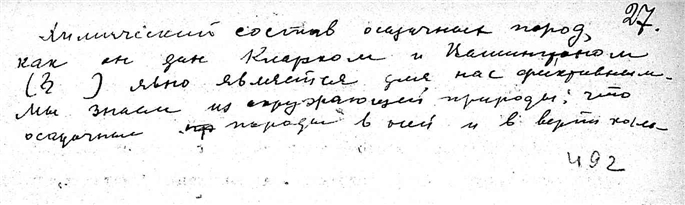 27.
Химический состав осадочных пород,
как он дан Кларком и Вашингтоном
(3 ) явно является для нас фиктивным.
Мы знаем из окружающей природы, что
осадочные породы в ней и в вертикаль-
492